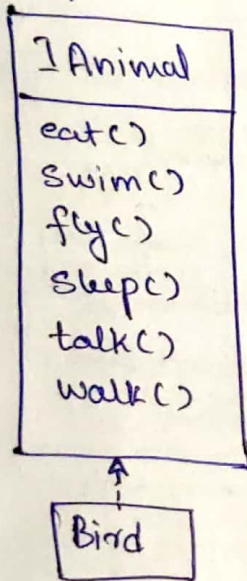 IAnimal
eat()
Swim()
fly()
Sleep()
talk()
walk()
Bird